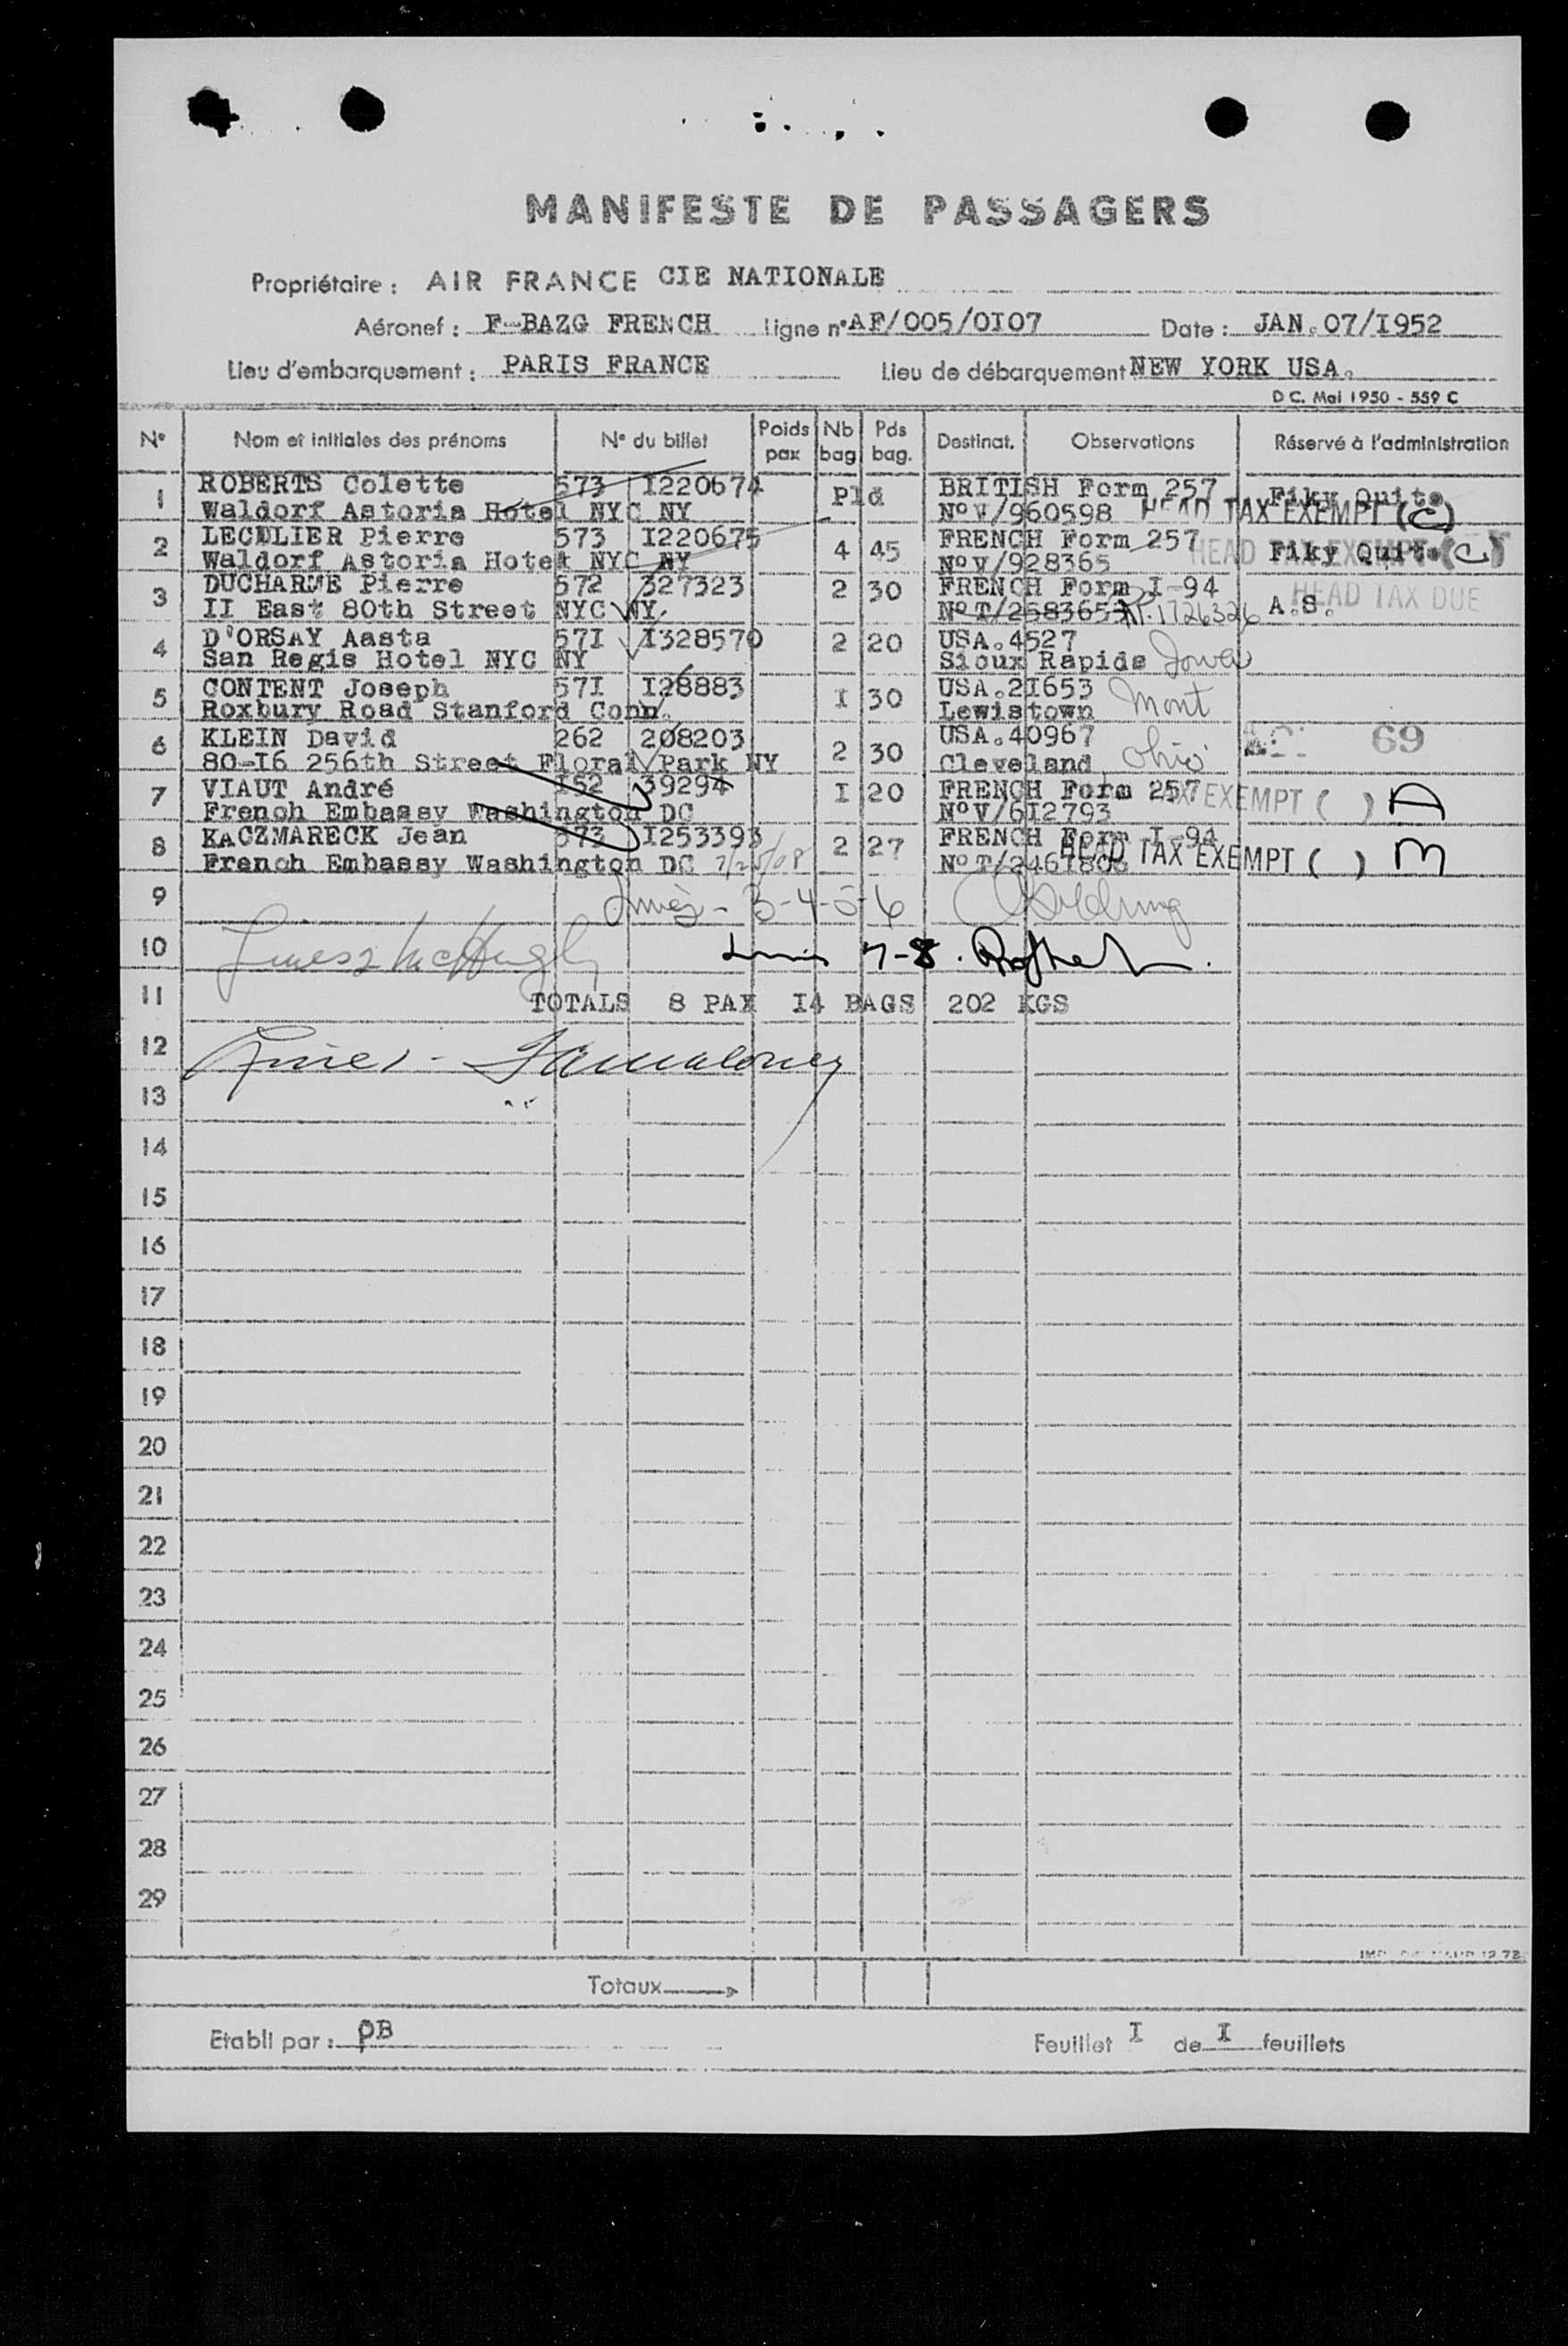 MANIFESTE DE PASSAGERS
Propriétaire : AIR FRANCE CIE NATIONALE
Aéronef : F-BAZG FRENCH Ligne n° AF/005/0I07 Date : JAN. 07/I952
Lieu d'embarquement : PARIS FRANCE Lieu de débarquement NEW YORK USA.
D C. Mai 1950 - 559 C
N° Nom et initiales des prénoms N° du billet Poids pax Nb bag Pds bag. Destinat. Observations Réservé à l'administration
1 ROBERTS Colette 573 I220674 Pld BRITISH Form 257 Fiky Quito
Waldorf Astoria Hotel NYC NY N° V/960598 HEAD TAX EXEMPT (C)
2 LECULIER Pierre 573 I220675 4 45 FRENCH Form 257 HEAD TAX EXEMPT (C)
Waldorf Astoria Hotel NYC NY N° V/928365 Fiky Quito
3 DUCHARME Pierre 572 327323 2 30 FRENCH Form I-94 HEAD TAX DUE
II East 80th Street NYC NY. N° T/2683653 1726326 A.S.
4 D'ORSAY Aasta 57I I328570 2 20 USA.4527
San Regis Hotel NYC NY Sioux Rapids Iowa
5 CONTENT Joseph 57I I28883 I 30 USA.2I653
Roxbury Road Stanford Conn. Lewistown Mont
6 KLEIN David 262 208203 2 30 USA.40967 69
80-I6 256th Street Floral Park NY Cleveland Ohio
7 VIAUT André I52 39294 I 20 FRENCH Form 257 TAX EXEMPT ( ) A
French Embassy Washington DC N° V/6I2793
8 KACZMARECK Jean 573 I253393 2 27 FRENCH Form I-94
French Embassy Washington DC N° T/246I806 HEAD TAX EXEMPT ( ) M
9 Lines - 3-4-5-6
10 Lines 2 McHugh Lines 7-8.
11 TOTALS 8 PAX I4 BAGS 202 KGS
12 Line 1 -
13
14
15
16
17
18
19
20
21
22
23
24
25
26
27
28
29
Totaux
Etabli par : PB Feuillet I de I feuillets